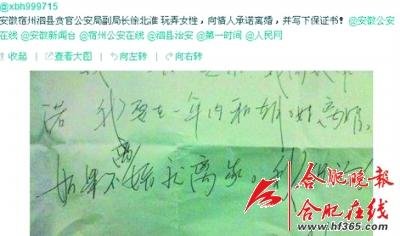 @xbh999715
安徽宿州泗县贪官公安局副局长徐北淮 玩弄女性，向情人承诺离婚，并写下保证书！@安徽公安
在线 @安徽新闻台 @宿州公安在线 @泗县治安 @第一时间 @人民网
收起 查看大图 向左转 向右转
诺 我要在一年内和
离婚。
如果不离婚就离
合肥晚报
合肥在线
www.hf365.com